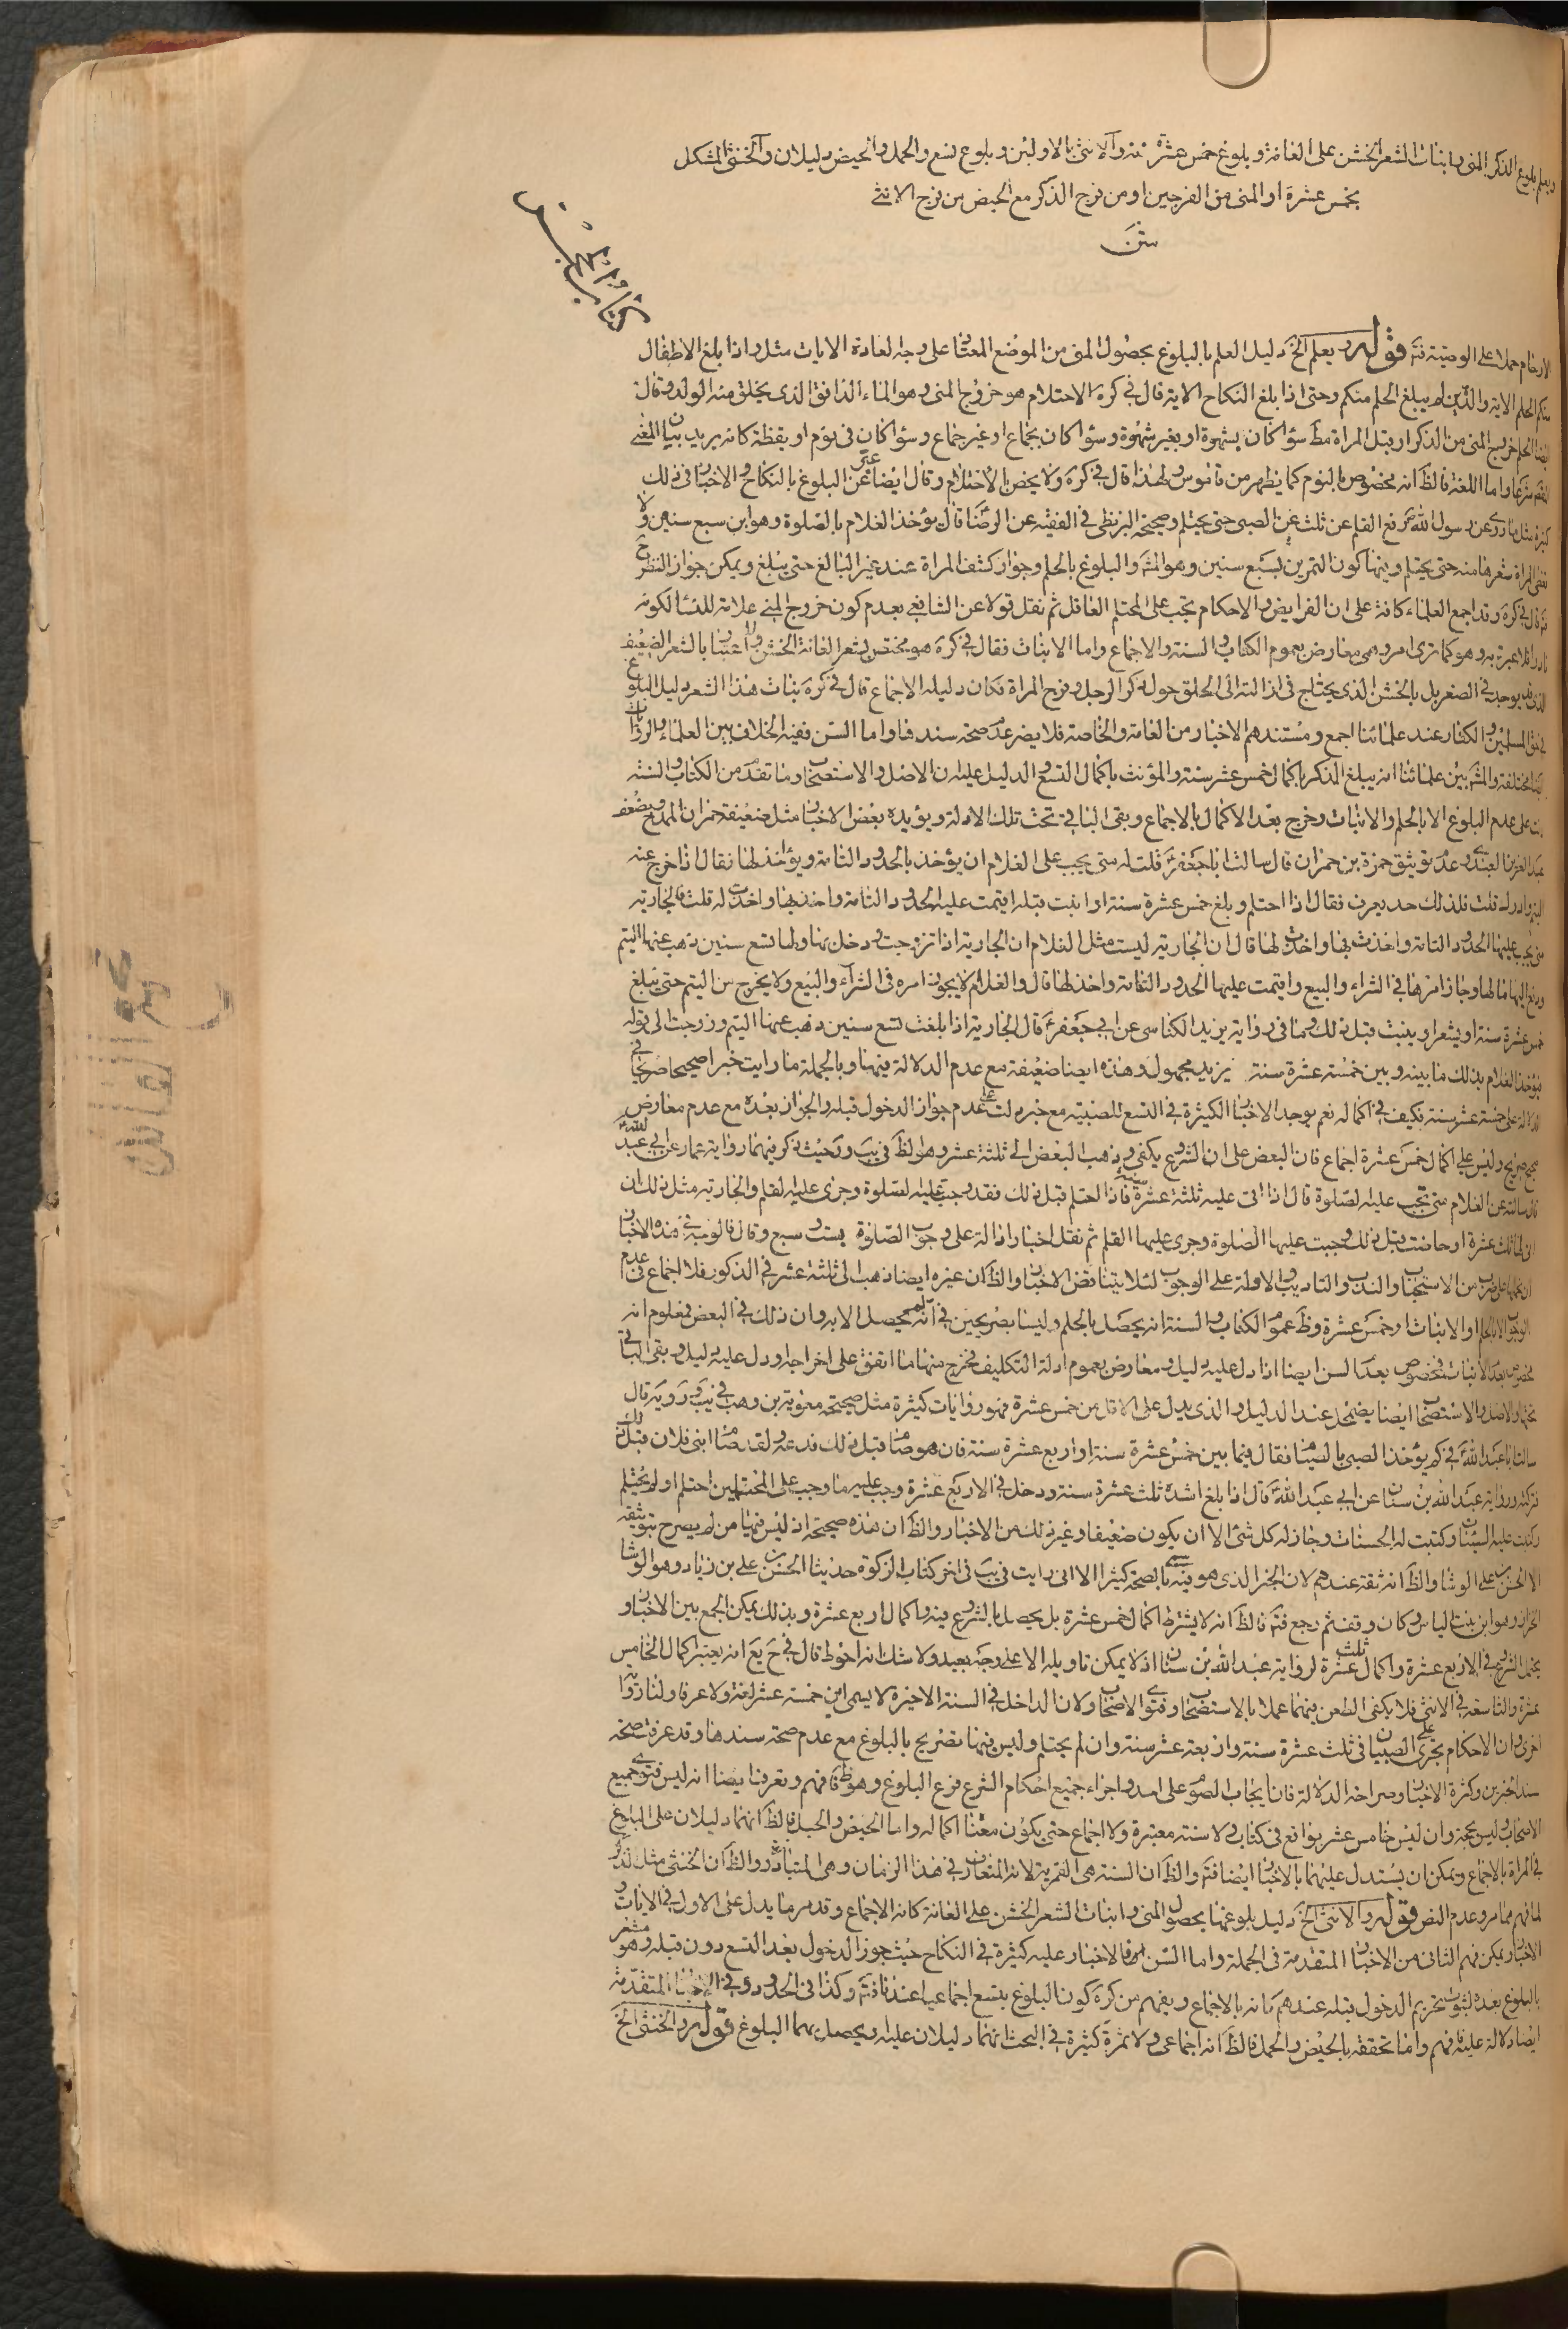 ويعلم بلوغ الذكر المنى وبانبات الشعر الخشن على العانة وبلوغ خمس عشرة سنة والانثى بالاولين وبلوغ تسع والحمل والحيض دليلان والخنثى المشكل
بخمس عشرة او المنى من الفرجين او من فرج الذكر مع الحيض من فرج الانثى
متن
الارحام حملا على الوصية فتم قوله ويعلم الخ دليل العلم بالبلوغ بحصول المنى من الموضع المعتاد على وجه العادة الايات مثل واذا بلغ الاطفال
منكم الحلم الاية والذين لم يبلغ الحلم منكم وحتى اذا بلغ النكاح الاية قال فى كره الاحتلام هو خروج المنى وهو الماء الدافق الذى يخلق منه الولد وقال
ايضا الحلم خروج المنى من الذكر او قبل المراة مط سواء كان بشهوة او بغير شهوة وسواء كان بجماع او غير جماع وسواء كان فى نوم او يقظة كانه يريد بيان المعنى
شرعا واما اللغة فالظ انه مخصوص بالنوم كما يظهر من قاموس ولهذا قال فى كره ولا يختص بالاحتلام وقال ايضا عبر عن البلوغ بالنكاح والاخبار فى ذلك
كثيرة مثل ما روى عن رسول الله رفع القلم عن ثلث عن الصبى حتى يحتلم وصحيحة البزنطى فى الفقيه عن الرضا قال يؤخذ الغلام بالصلوة وهو ابن سبع سنين ولا
تغطى المراة شعرها منه حتى يحتلم وفيها كون التمرين بسبع سنين وهو المشه والبلوغ بالحلم وجواز كشف المراة عند غير البالغ حتى يبلغ ويمكن جواز النظر ح
ثم قال فى كره وقد اجمع العلماء كافة على ان الفرايض والاحكام تجب على المحتلم العاقل ثم نقل قولا عن الشافعى بعدم كون خروج المنى علامة للنساء لكونه
نادرا فلا عبرة به وهو كما ترى امر وهمى معارض بعموم الكتاب والسنة والاجماع واما الانبات فقال فى كره هو مختص بشعر العانة الخشن ولا اعتبار بالشعر الضعيف
الذى قد يوجد فى الصغر بل بالخشن الذى يحتاج فى ازالته الى الحلق حول ذكر الرجل وفرج المراة فكان دليله الاجماع قال فى كره نبات هذا الشعر دليل البلوغ
فى حق المسلمين والكفار عند علمائنا اجمع ومستندهم الاخبار من العامة والخاصة فلا يضر عدم صحة سندها واما السن ففيه الخلاف بين العلماء والروايات
ايضا مختلفة والمشه بين علمائنا انه يبلغ الذكر باكمال خمس عشر سنة والمؤنث باكمال التسع والدليل عليه ان الاصل والاستصحاب وما تقدم من الكتاب والسنة
دلت على عدم البلوغ الا بالحلم والانبات وخرج بعد الاكمال بالاجماع وبقى الباقى تحت تلك الادلة ويؤيده بعض الاخبار مثل ضعيفة حمران الممدوح بضعف
عبد العزيز العبدى وعدم توثيق حمزة بن حمران قال سالت ابا جعفر قلت له متى يجب على الغلام ان يؤخذ بالحدود التامة ويؤاخذ لها فقال اذا خرج عنه
اليتم وادرك قلت فلذلك حد يعرف فقال اذا احتلم وبلغ خمس عشرة سنة او انبت قبله اقيمت عليه الحدود التامة واخذ بها واخذت له قلت فالجارية
متى يجب عليها الحدود التامة واخذت بها واخذت لها قال ان الجارية ليست مثل الغلام ان الجارية اذا تزوجت ودخل بها ولها تسع سنين ذهب عنها اليتم
ودفع اليها مالها وجاز امرها فى الشراء والبيع واقيمت عليها الحدود التامة واخذ لها قال والغلام لا يجوز امره فى الشراء والبيع ولا يخرج من اليتم حتى يبلغ
خمس عشرة سنة او يشعر او ينبت قبل ذلك وما فى رواية يزيد الكناسى عن ابى جعفر قال الجارية اذا بلغت تسع سنين ذهب عنها اليتم وزوجت الى قوله
يؤخذ الغلام بذلك ما بينه وبين خمسة عشرة سنة يزيد مجهول وهذه ايضا ضعيفة مع عدم الدلالة فيهما وبالجملة ما رايت خبرا صحيحا صريحا فى
الدلالة على خمسة عشر سنة فكيف فى اكماله نعم يوجد الاخبار الكثيرة فى التسع للصبية مع خبر دلت على عدم جواز الدخول قبله والجواز بعده مع عدم معارض
صحيح صريح وليس على اكمال خمس عشرة اجماع فان البعض على ان الشروع يكفى وذهب البعض الى ثلثة عشر وهو الظ فى يب ور حيث ذكر فيهما رواية عمار عن ابى عبد الله
قال سالته عن الغلام متى تجب عليه الصلوة قال اذا اتى عليه ثلثة عشرة سنة فاذا احتلم قبل ذلك فقد وجبت عليه الصلوة وجرى عليه القلم والجارية مثل ذلك ان
اتى لها ثلث عشرة او حاضت قبل ذلك وجبت عليها الصلوة وجرى عليها القلم ثم نقل اخبارا دالة على وجوب الصلوة بست وسبع وقال فالوجه فى هذه الاخبار
ان نحملها على ضرب من الاستحباب والندب والتاديب والاولة على الوجوب لئلا يتناقض الاخبار والظ ان غيره ايضا ذهب الى ثلثة عشر فى الذكور فلا اجماع فى عدم
الوجوب الا بالحلم او الانبات او خمس عشرة وظ عموم الكتاب والسنة انه يحصل بالحلم وليسا بصريحين فى انه لم يحصل الا به وان ذلك فى البعض فمعلوم انه
مخصوص بعد الانبات فمخصوص بعد السن ايضا اذا دل عليه دليل ومعارض بعموم ادلة التكليف فخرج منها ما اتفق على اخراجه او دل عليه دليل وبقى الباقى
تحتها والاصل والاستصحاب ايضا يضمحل عند الدليل والذى يدل على الاقل من خمس عشرة فهو روايات كثيرة مثل صحيحة معوية بن وهب فى يب ور ويه قال
سالت ابا عبد الله فى كم يؤخذ الصبى بالصيام فقال فيما بين خمس عشرة سنة واربع عشرة سنة فان هو صام قبل ذلك فدعه ولقد صام ابنى فلان قبل ذلك
فتركته ورواية عبد الله بن سنان عن ابى عبد الله قال اذا بلغ اشده ثلث عشرة سنة ودخل فى الاربع عشرة وجب عليه ما وجب على المحتلمين احتلم او لم يحتلم
وكتبت عليه السيئات وكتبت له الحسنات وجاز له كل شئ الا ان يكون ضعيفا وغير ذلك من الاخبار والظ ان هذه صحيحة اذ ليس فيها من لم يصرح بتوثيقه
الا الحسن بن على الوشا والظ انه ثقة عندهم لان الخبر الذى هو فيه يسمى بالصحة كثيرا الا انى رايت فى يب فى اخر كتاب الزكوة حديثا الحسن بن على بن زياد وهو الوشا
الخزاز وهو ابن بنت الياس وكان وقف ثم رجع فتم فالظ انه لا يشترط اكمال خمس عشرة بل يحصل بالشروع فيه واكمال اربع عشرة وبذلك يمكن الجمع بين الاخبار و
يحتمل الشروع فى الاربع عشرة واكمال ثلث عشرة لرواية عبد الله بن سنان اذ لا يمكن تاويله الا على وجه بعيد ولا شك انه احوط قال فى ح يع انه يعتبر اكمال الخامس
عشرة والتاسعة فى الانثى فلا يكفى الطعن فيهما عملا بالاستصحاب وفتوى الاصحاب ولان الداخل فى السنة الاخيرة لا يسمى ابن خمسة عشر لغة ولا عرفا ولنا رواية
اخرى ان الاحكام تجرى على الصبيان فى ثلث عشرة سنة واربعة عشر سنة وان لم يحتلم وليس فيها تصريح بالبلوغ مع عدم صحة سندها وقد عرفت صحة
سند الخبرين وكثرة الاخبار وصراحة الدلالة فان ايجاب الصوم على امد واجراء جميع احكام الشرع فرع البلوغ وهو ظ فافهم وتعرف ايضا انه ليس فتوى جميع
الاصحاب وليس بحجة وان ليس خامس عشر بواقع فى كتاب ولا سنة معتبرة ولا اجماع حتى يكون معنا اكماله واما الحيض والحبل فالظ انهما دليلان على البلوغ
فى المراة بالاجماع ويمكن ان يستدل عليهما بالاخبار ايضا فتم والظ ان السنة هى القمرية لانه المتعارف فى هذا الزمان وهى المتبادر والظ ان الخنثى مثل الذكر
لما فهم مما مر وعدم النص قوله والانثى الخ دليل بلوغها بحصول المنى وانبات الشعر الخشن على العانة كانه الاجماع وقد مر ما يدل على الاول فى الايات و
الاخبار ويمكن فهم الثانى من الاخبار المتقدمة فى الجملة واما السن فالاخبار عليه كثيرة فى النكاح حيث جوز الدخول بعد التسع دون قبله وهو مشعر
بالبلوغ بعده لثبوت تحريم الدخول قبله عندهم كانه بالاجماع ويفهم من كره كون البلوغ بتسع اجماعيا عندنا فتم وكذا فى الحدود وفى الاخبار المتقدمة
ايضا دلالة عليه فافهم واما تحققه بالحيض والحمل فالظ انه اجماعى ولا ثمرة كثيرة فى البحث انهما دليلان عليه او يحصل بهما البلوغ قوله والخنثى الخ